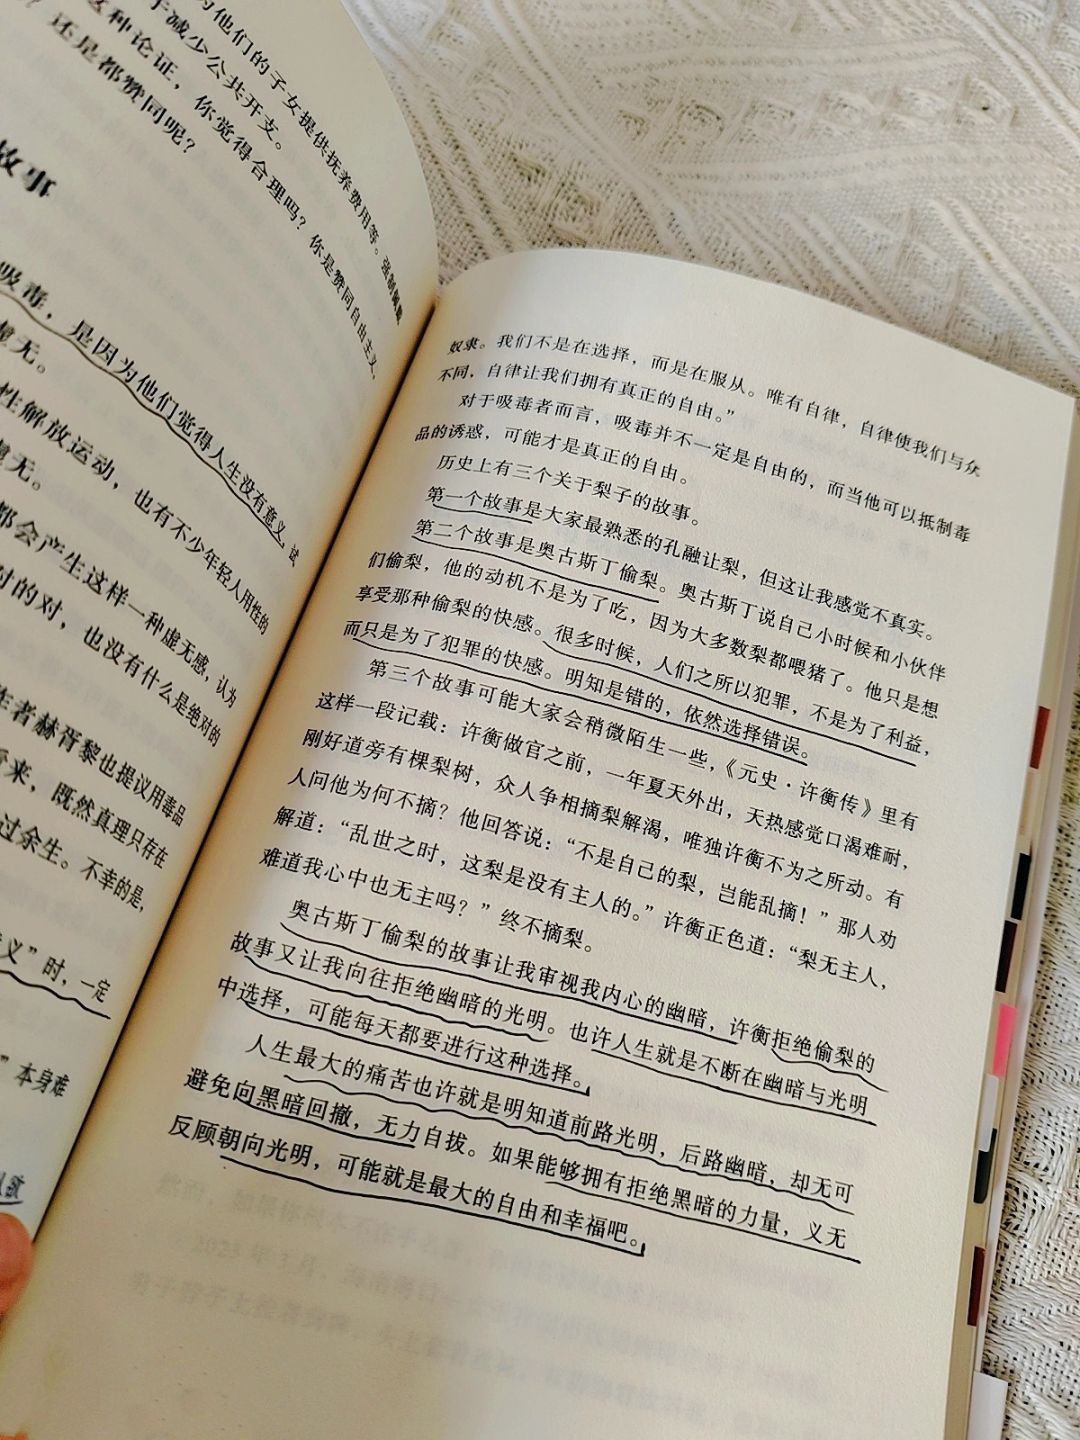 为他们的子女提供抚养费用等。强制佩戴
于减少公共开支。
这种论证，你觉得合理吗？你是赞同自由主义，
还是都赞同呢？
故事
吸毒，是因为他们觉得人生没有意义，试
虚无。
性解放运动，也有不少年轻人用性的
虚无。
都会产生这样一种虚无感，认为
对的对，也没有什么是绝对的
者赫胥黎也提议用毒品
看来，既然真理只存在
过余生。不幸的是，
义”时，一定
”本身难
奴隶。我们不是在选择，而是在服从。唯有自律，自律使我们与众
不同，自律让我们拥有真正的自由。”
对于吸毒者而言，吸毒并不一定是自由的，而当他可以抵制毒
品的诱惑，可能才是真正的自由。
历史上有三个关于梨子的故事。
第一个故事是大家最熟悉的孔融让梨，但这让我感觉不真实。
第二个故事是奥古斯丁偷梨。奥古斯丁说自己小时候和小伙伴
们偷梨，他的动机不是为了吃，因为大多数梨都喂猪了。他只是想
享受那种偷梨的快感。很多时候，人们之所以犯罪，不是为了利益，
而只是为了犯罪的快感。明知是错的，依然选择错误。
第三个故事可能大家会稍微陌生一些，《元史·许衡传》里有
这样一段记载：许衡做官之前，一年夏天外出，天热感觉口渴难耐，
刚好道旁有棵梨树，众人争相摘梨解渴，唯独许衡不为之所动。有
人问他为何不摘？他回答说：“不是自己的梨，岂能乱摘！”那人劝
解道：“乱世之时，这梨是没有主人的。”许衡正色道：“梨无主人，
难道我心中也无主吗？”终不摘梨。
奥古斯丁偷梨的故事让我审视我内心的幽暗，许衡拒绝偷梨的
故事又让我向往拒绝幽暗的光明。也许人生就是不断在幽暗与光明
中选择，可能每天都要进行这种选择。
人生最大的痛苦也许就是明知道前路光明，后路幽暗，却无可
避免向黑暗回撤，无力自拔。如果能够拥有拒绝黑暗的力量，义无
反顾朝向光明，可能就是最大的自由和幸福吧。